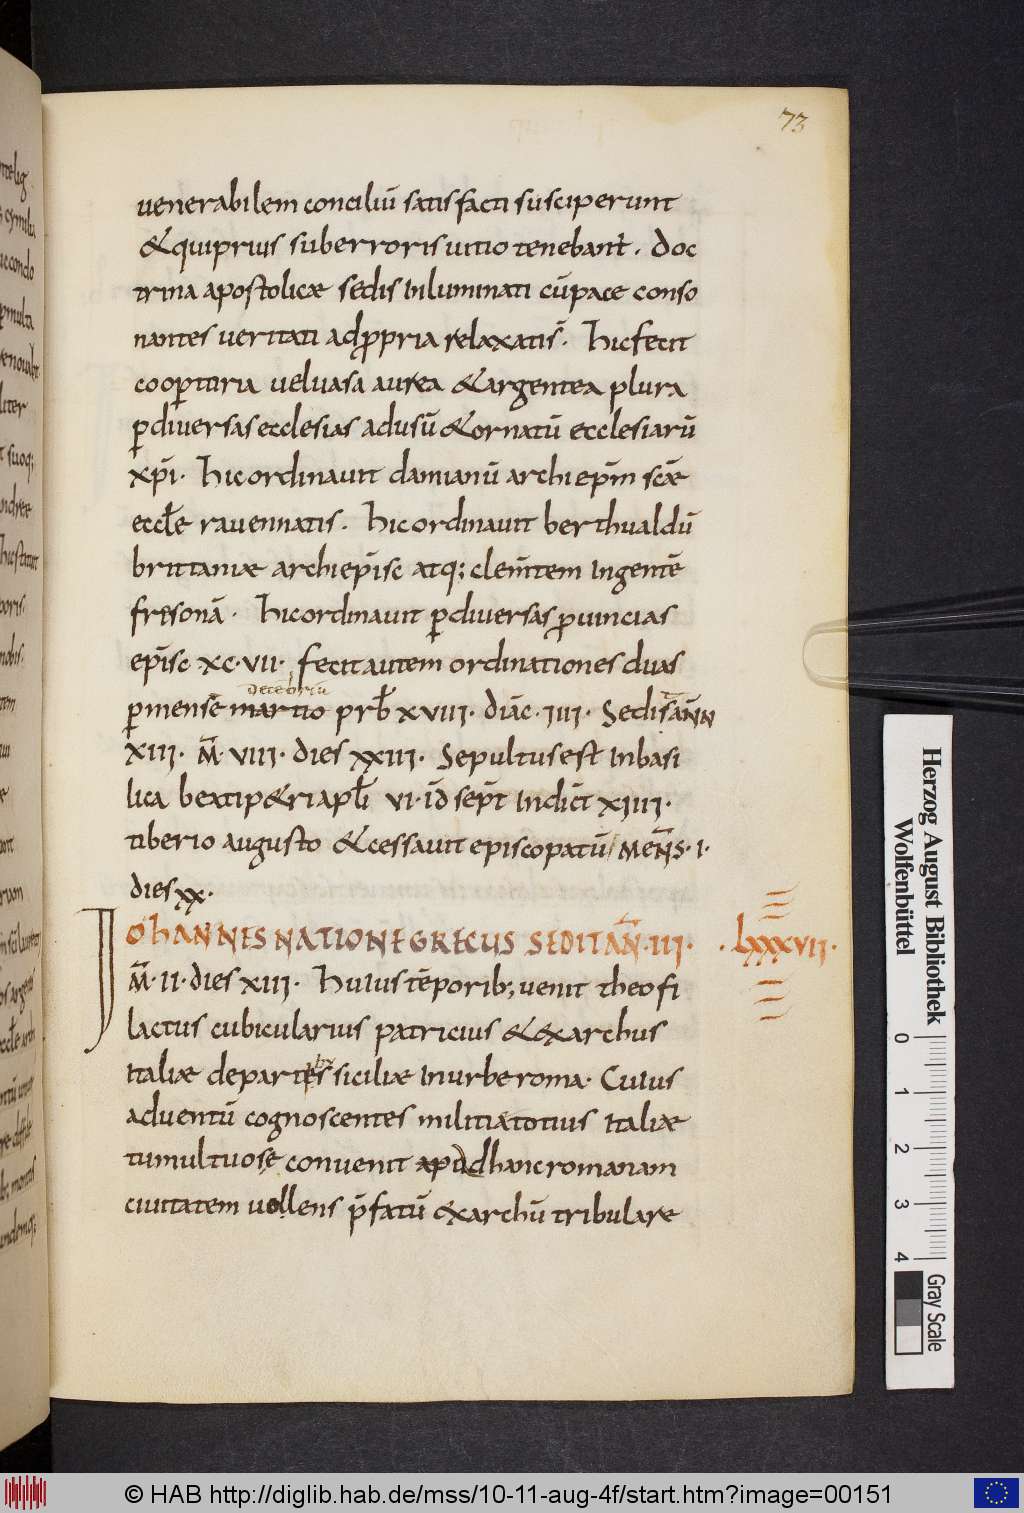 73
uenerabilem conciliū satisfacti susciperunt
& qui prius sub erroris uitio tenebant̄. Doc
trina apostolicæ sedis inluminati cū pace conso
nantes ueritati ad ꝓpria relaxatis̄. Hic fecit
cooperturia uel uasa aurea & argentea plura
ꝑ diuersas ecclesias ad usū & ornatū ecclesiarū
xp̄i. Hic ordinauit damianū archiep̄m scǣ
eccl̄e rauennatis. Hic ordinauit berthualdū
brittaniæ archiep̄isc atq; clem̄tem ingentē
fresonā. Hic ordinauit ꝑ diuersas ꝓuincias
ep̄isc xc·vii. fecit autem ordinationes duas
decēbriū
ꝑ mensē martio prb̄ xviii. diāc·iiii. Sedis ānn
xiii. m̄·viii. dies xxiii. Sepultus est in basi
lica beati p&ri apl̄i vi·id̄ sep̄t indic̄t xiiii.
tiberio augusto & cessauit episcopatū mens̄·i.
dies xx.
IOHANNES NATIONE GRECUS SEDIT AN̄·III. ·LXXXVII·
m̄·ii·dies xiii. Huius tēporib; uenit theofi
lactus cubicularius patricius & exarchus
italiæ de partes siciliæ in urbe roma. Cuius
aduentū cognoscentes militia totius italiæ
tumultuose conuenit apud hanc romanam
ciuitatem uollens p̄fatū exarchū tribulare
Herzog August Bibliothek
Wolfenbüttel
0 1 2 3 4
Gray Scale
© HAB http://diglib.hab.de/mss/10-11-aug-4f/start.htm?image=00151